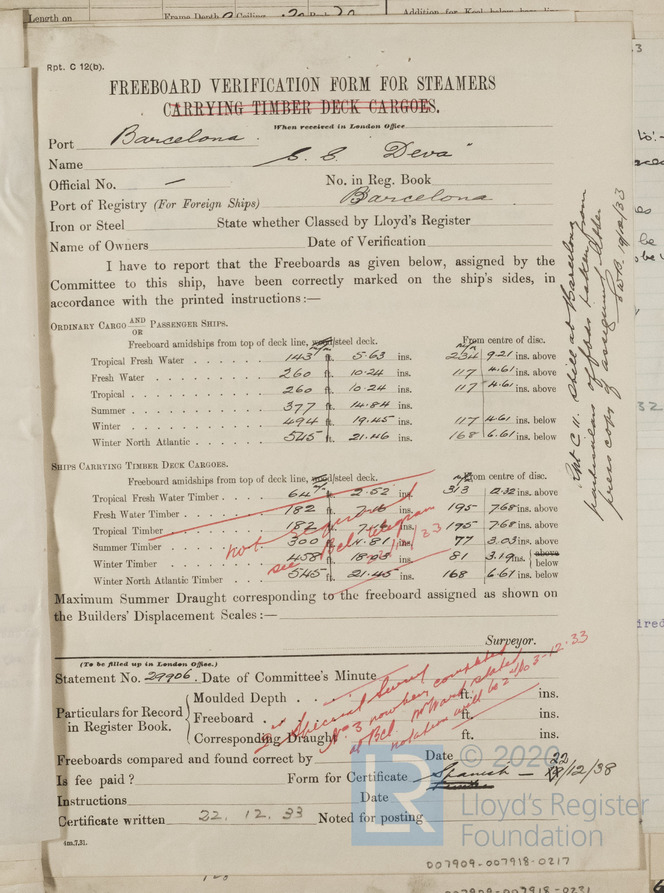 Length on Frame Depth Ceiling Addition for Keel below base line
Rpt. C 12(b).
FREEBOARD VERIFICATION FORM FOR STEAMERS
CARRYING TIMBER DECK CARGOES.
When received in London Office
Port Barcelona.
Name S. S. "Deva"
Official No. — No. in Reg. Book
Port of Registry (For Foreign Ships) Barcelona
Iron or Steel State whether Classed by Lloyd's Register
Name of Owners Date of Verification
I have to report that the Freeboards as given below, assigned by the
Committee to this ship, have been correctly marked on the ship's sides, in
accordance with the printed instructions:—
ORDINARY CARGO AND OR PASSENGER SHIPS.
Freeboard amidships from top of deck line, wood/steel deck. From centre of disc.
Tropical Fresh Water 143 ft. 5.63 ins. 234 9.21 ins. above
Fresh Water 260 ft. 10.24 ins. 117 4.61 ins. above
Tropical 260 ft. 10.24 ins. 117 4.61 ins. above
Summer 377 ft. 14.84 ins.
Winter 494 ft. 19.45 ins. 117 4.61 ins. below
Winter North Atlantic 545 ft. 21.46 ins. 168 6.61 ins. below
SHIPS CARRYING TIMBER DECK CARGOES.
Freeboard amidships from top of deck line, wood/steel deck. m/m From centre of disc.
Tropical Fresh Water Timber 64 ft. 2.52 ins. 313 12.32 ins. above
Fresh Water Timber 182 ft. 7.16 ins. 195 7.68 ins. above
Tropical Timber 182 ft. 7.16 ins. 195 7.68 ins. above
Summer Timber 300 ft. 11.81 ins. 77 3.03 ins. above
Winter Timber 458 ft. 18.03 ins. 81 3.19 ins. above below
Winter North Atlantic Timber 545 ft. 21.45 ins. 168 6.61 ins. below
not required
see Bcl telegram
Maximum Summer Draught corresponding to the freeboard assigned as shown on
the Builders' Displacement Scales:—
Surveyor.
(To be filled up in London Office.)
Statement No. 29906. Date of Committee's Minute
Particulars for Record in Register Book.
Moulded Depth ft. ins.
Freeboard ft. ins.
Corresponding Draught ft. ins.
Special Survey
No 3 now been completed
at Bcl.
notation will be 2 No 3-12-33
Freeboards compared and found correct by Date 22
Is fee paid? Form for Certificate Spanish — /12/38
Instructions Date
Certificate written 22. 12. 33 Noted for posting
4m.7.31.
Rpt C 11. still at Barcelona
particulars of fbds taken from
press copy of assigning letter
19/12/33
© 2020
LR
Lloyd's Register
Foundation
007909-007918-0217
007909-007918-0231